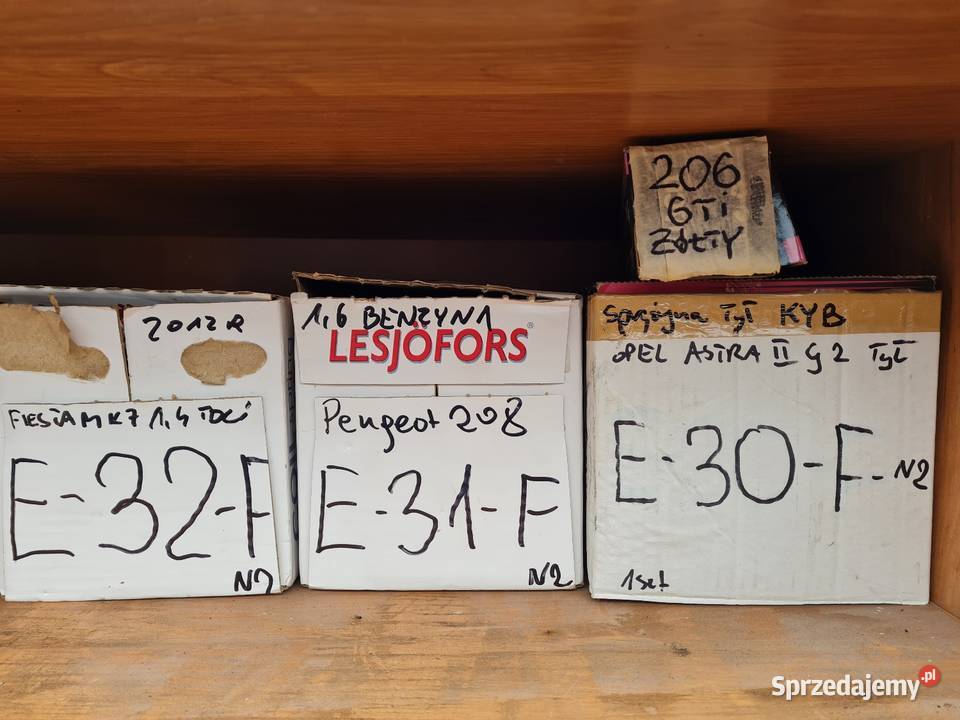 2012R
FIESTA MK7 1,4 TDCi
E-32-F
N2
1,6 BENZYNA
LESJÖFORS®
Peugeot 208
E-31-F
N2
206
GTi
ŻÓŁTY
Sprężyna Tył KYB
OPEL ASTRA II G 2 Tył
E-30-F-N2
1set
Sprzedajemy.pl